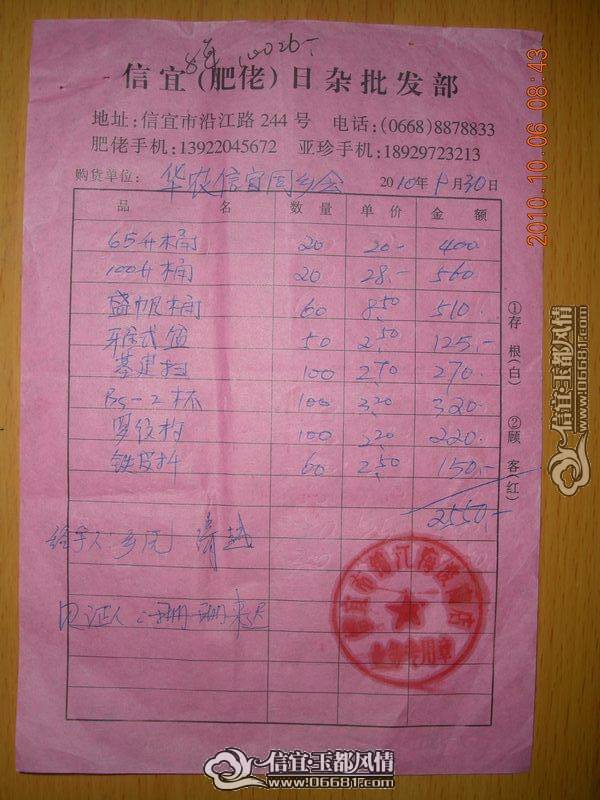 信宜(肥佬)日杂批发部
地址:信宜市沿江路244号 电话:(0668)8878833
肥佬手机:13922045672 亚珍手机:18929723213
购货单位: 华农信宜同乡会 2010年9月30日
品名 数量 单价 金额
65升桶 20 20- 400.
100升桶 20 28.- 560.
60 8.50 510.
50 2.50 125.-
基建扫 100 2.70 270.
BS-2杯 100 3.20 320.
100 2.20 220.
60 2.50 150.-
2550.-
经手人:
见证人:
①存根(白) ②顾客(红)
2010.10.06 08:43
信宜·玉都风情
www.06681.com
信宜·玉都风情
www.06681.com